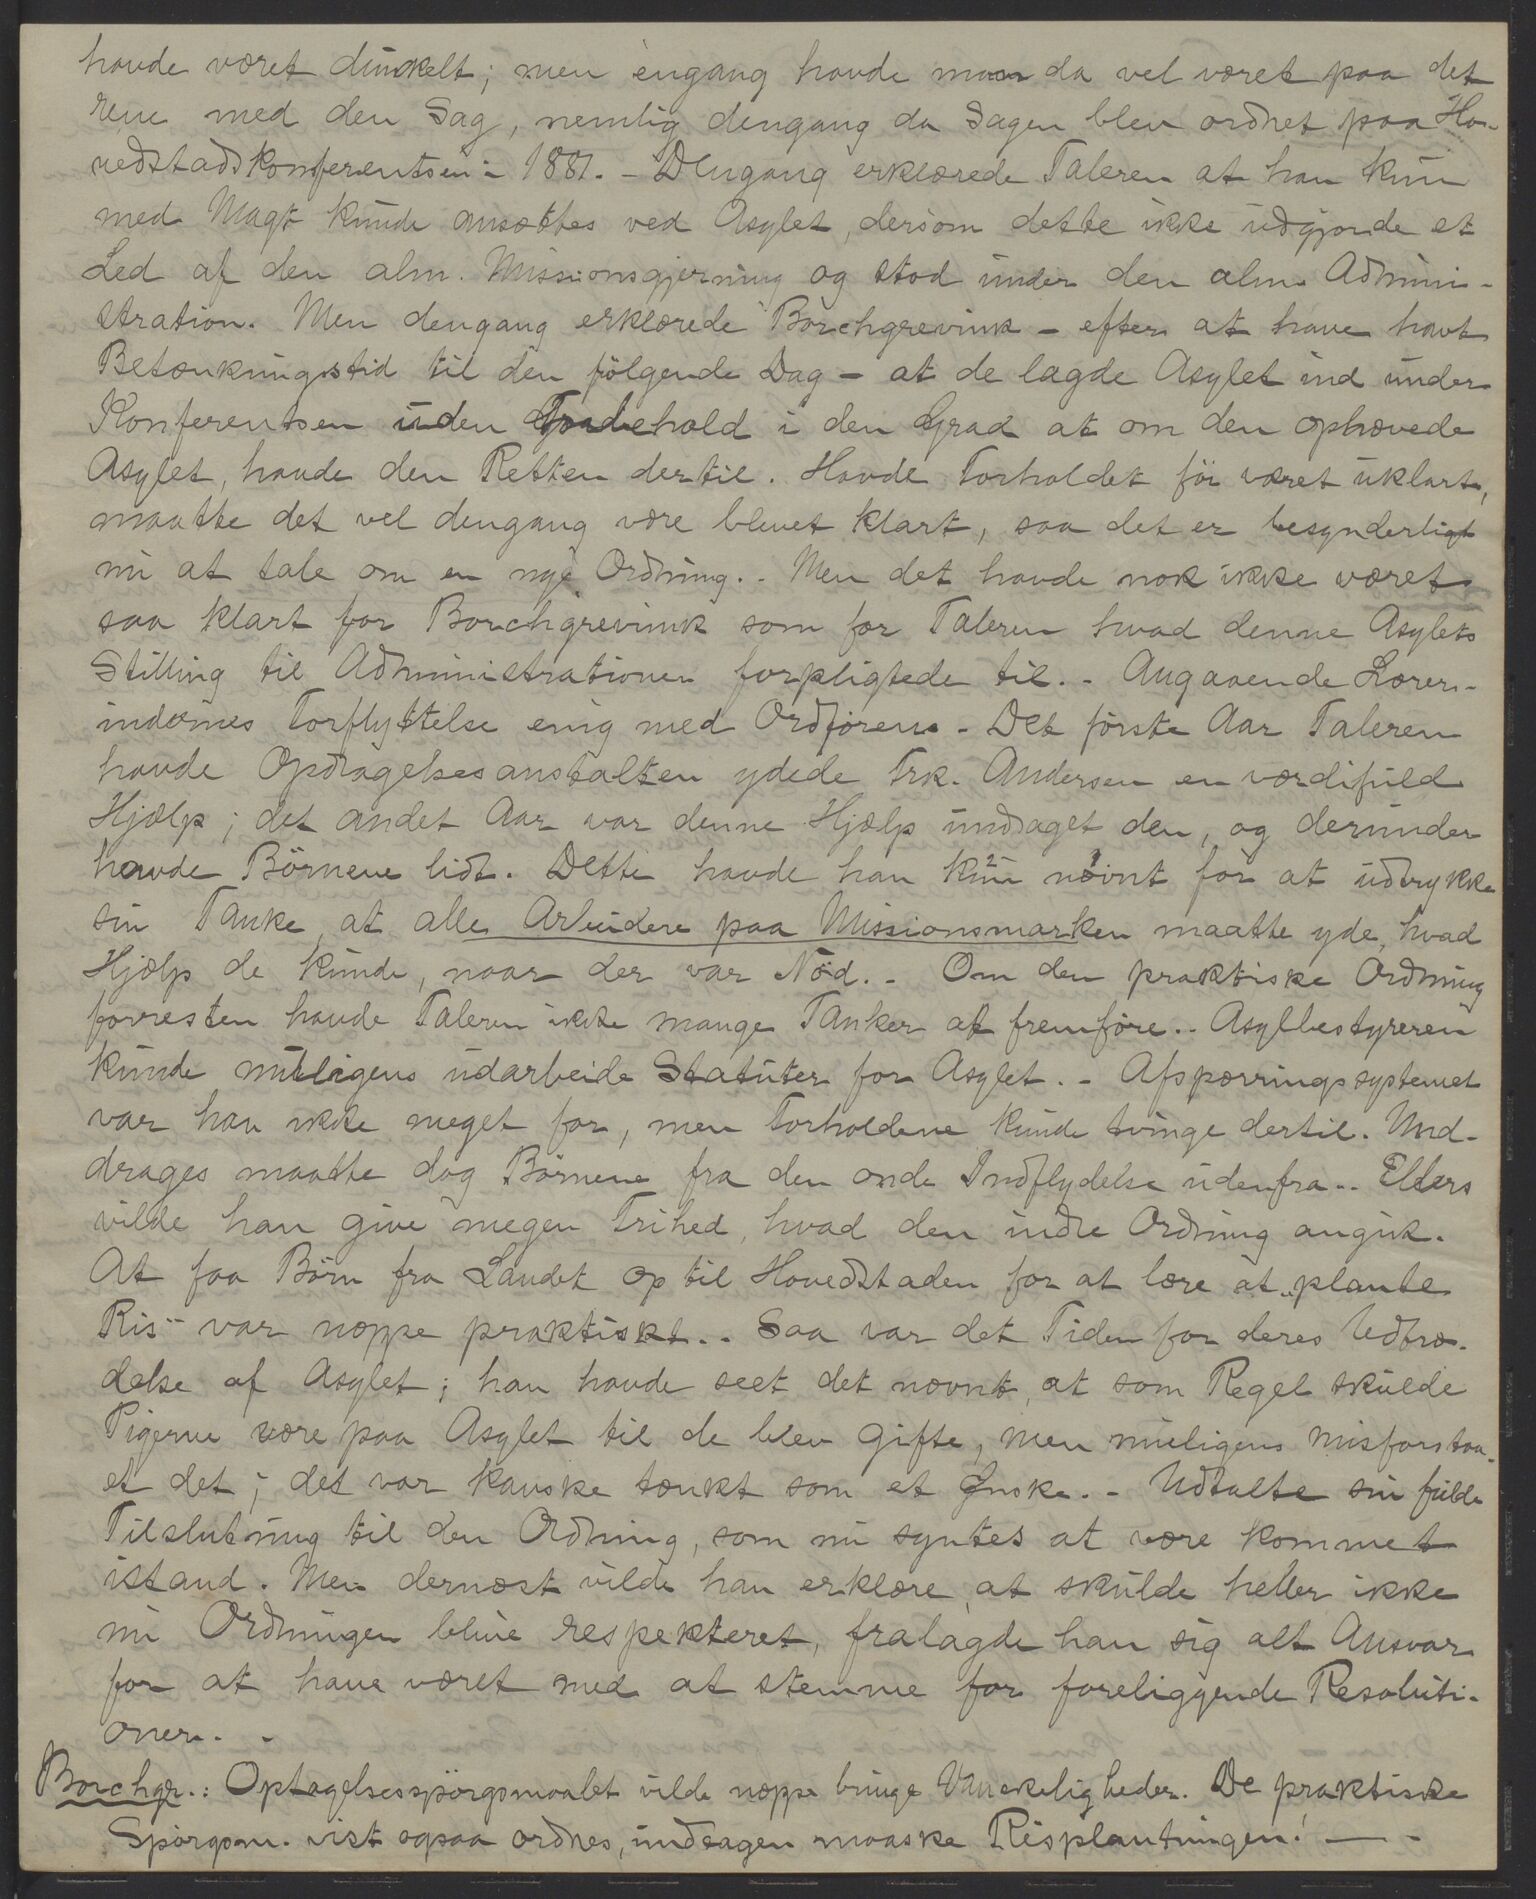 havde været dunkelt; men engang havde man da vel været paa det
rene med den Sag, nemlig dengang da Sagen blev ordnet paa Ho-
vedstadskonferentsen i 1881. - Dengang erklærede Taleren at han kun
med Magt kunde ansættes ved Asylet, dersom dette ikke udgjorde et
Led af den alm. Missionsgjerning og stod under den alm. Admini-
stration. Men dengang erklærede Borchgrevink - efter at have havt
Betænkningstid til den følgende Dag - at de lagde Asylet ind under
Konferentsen uden Forbehold i den Grad at om den ophævede
Asylet, havde den Retten dertil. Havde Forholdet för været uklart,
maatte det vel dengang være blevet klart, saa det er besynderligt
nu at tale om en nye Ordning. - Men det havde nok ikke været
saa klart for Borchgrevink som for Taleren hvad denne Asylets
Stilling til Administrationen forpligtede til. - Angaaende Lærer-
indernes Forflyttelse enig med Ordføreren. - Det første Aar Taleren
havde Opdragelsesanstalten ydede Frk. Andersen en værdifuld
Hjælp; det andet Aar var denne Hjælp unddraget den, og derunder
havde Börnene lidt. Dette havde han kun nævnt for at udtrykke
sin Tanke, at alle Arbeidere paa Missionsmarken maatte yde, hvad
Hjælp de kunde, naar der var Nöd. - Om den praktiske Ordning
forresten havde Taleren ikke mange Tanker at fremføre. - Asylbestyreren
kunde muligens udarbeide Statuter for Asylet. - Afspærringssystemet
var han ikke meget for, men Forholdene kunde tvinge dertil. Und-
drages maatte dog Börnene fra den onde Indflydelse udenfra. - Ellers
vilde han give megen Frihed, hvad den indre Ordning angik.
At faa Börn fra Landet op til Hovedstaden for at lære at "plante
Ris" var neppe praktiskt. - Saa var det Tiden for deres Udtræ-
delse af Asylet; han havde seet det nævnt, at som Regel skulde
Pigerne være paa Asylet til de blev gifte, men muligens misforstaa-
et det; det var kanske tænkt som et Ønske. - Udtalte sin fulde
Tilslutning til den Ordning, som nu syntes at være kommet
istand. Men dernæst vilde han erklære, at skulde heller ikke
nu Ordningen blive respekteret, fralagde han sig alt Ansvar
for at have været med at stemme for foreliggende Resoluti-
oner. -
Borchgr.: Optagelsesspörgsmaalet vilde neppe bringe Vanskeligheder. De praktiske
Spörgsm. vist ogsaa ordnes, undtagen maaske Risplantningen! -